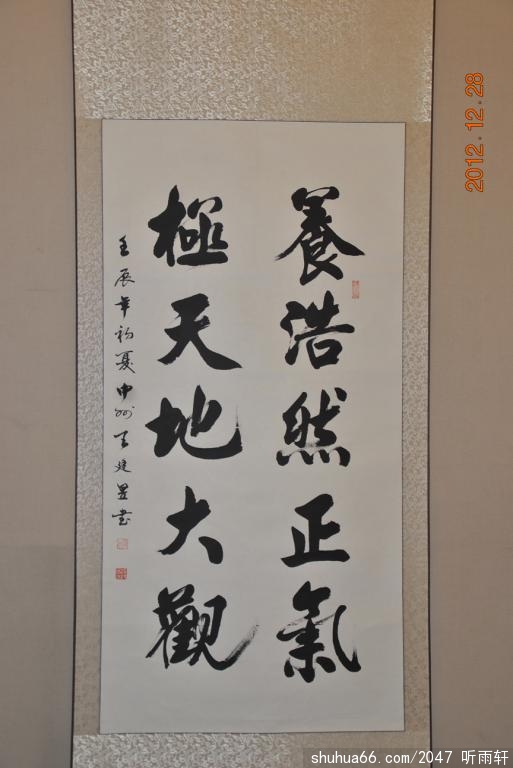 養浩然正氣
極天地大觀
壬辰年初夏中州 建昱書
2012.12.28
shuhua66.com/2047 听雨轩